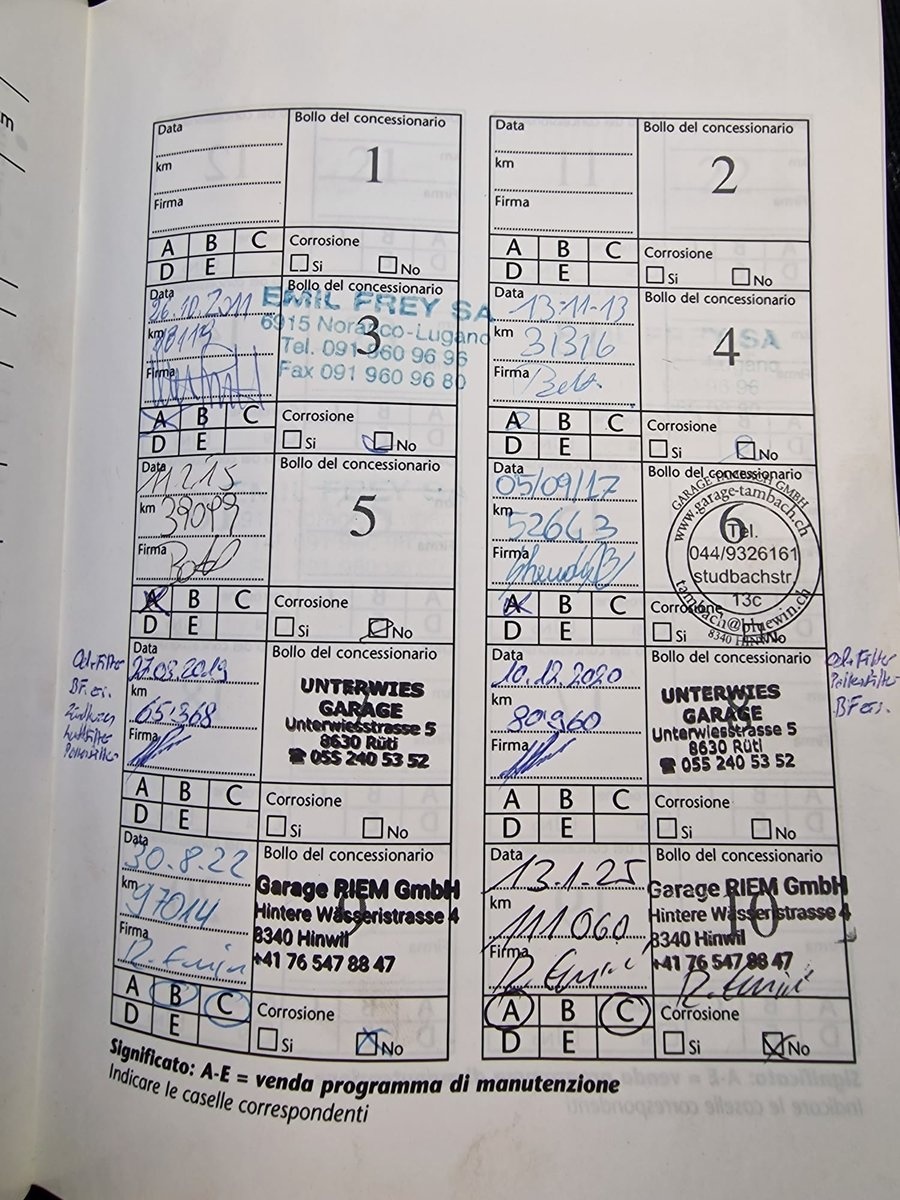 Data
km
Firma
Bollo del concessionario
1
A B C
D E
Corrosione
Si No
Data
km
Firma
Bollo del concessionario
2
A B C
D E
Corrosione
Si No
Data 26.10.2011
km
Firma
Bollo del concessionario
3
EMIL FREY SA
6915 Noranco-Lugano
Tel. 091 960 96 96
Fax 091 960 96 80
A B C
D E
Corrosione
Si No
Data 13-11-13
km 31316
Firma
Bollo del concessionario
4
A B C
D E
Corrosione
Si No
Data 11.2.15
km 39099
Firma
Bollo del concessionario
5
A B C
D E
Corrosione
Si No
Data 05/09/17
km 52643
Firma
Bollo del concessionario
6
www.garage-tambach.ch
Tel.
044/9326161
studbachstr.
13c
tambach@bluewin.ch
8340
A B C
D E
Corrosione
Si No
Data 27.03.2019
km 65'368
Firma
Bollo del concessionario
UNTERWIES
GARAGE
Unterwiesstrasse 5
8630 Rüti
☎ 055 240 53 52
A B C
D E
Corrosione
Si No
Data 10.12.2020
km 80'960
Firma
Bollo del concessionario
8
UNTERWIES
GARAGE
Unterwiesstrasse 5
8630 Rüti
☎ 055 240 53 52
A B C
D E
Corrosione
Si No
Data 30.8.22
km 97014
Firma
Bollo del concessionario
9
Garage RIEM GmbH
Hintere Wässeristrasse 4
8340 Hinwil
+41 76 547 88 47
A B C
D E
Corrosione
Si No
Data 13.1.25
km 111060
Firma
Bollo del concessionario
10
Garage RIEM GmbH
Hintere Wässeristrasse 4
8340 Hinwil
+41 76 547 88 47
A B C
D E
Corrosione
Si No
Significato: A-E = venda programma di manutenzione
Indicare le caselle correspondenti